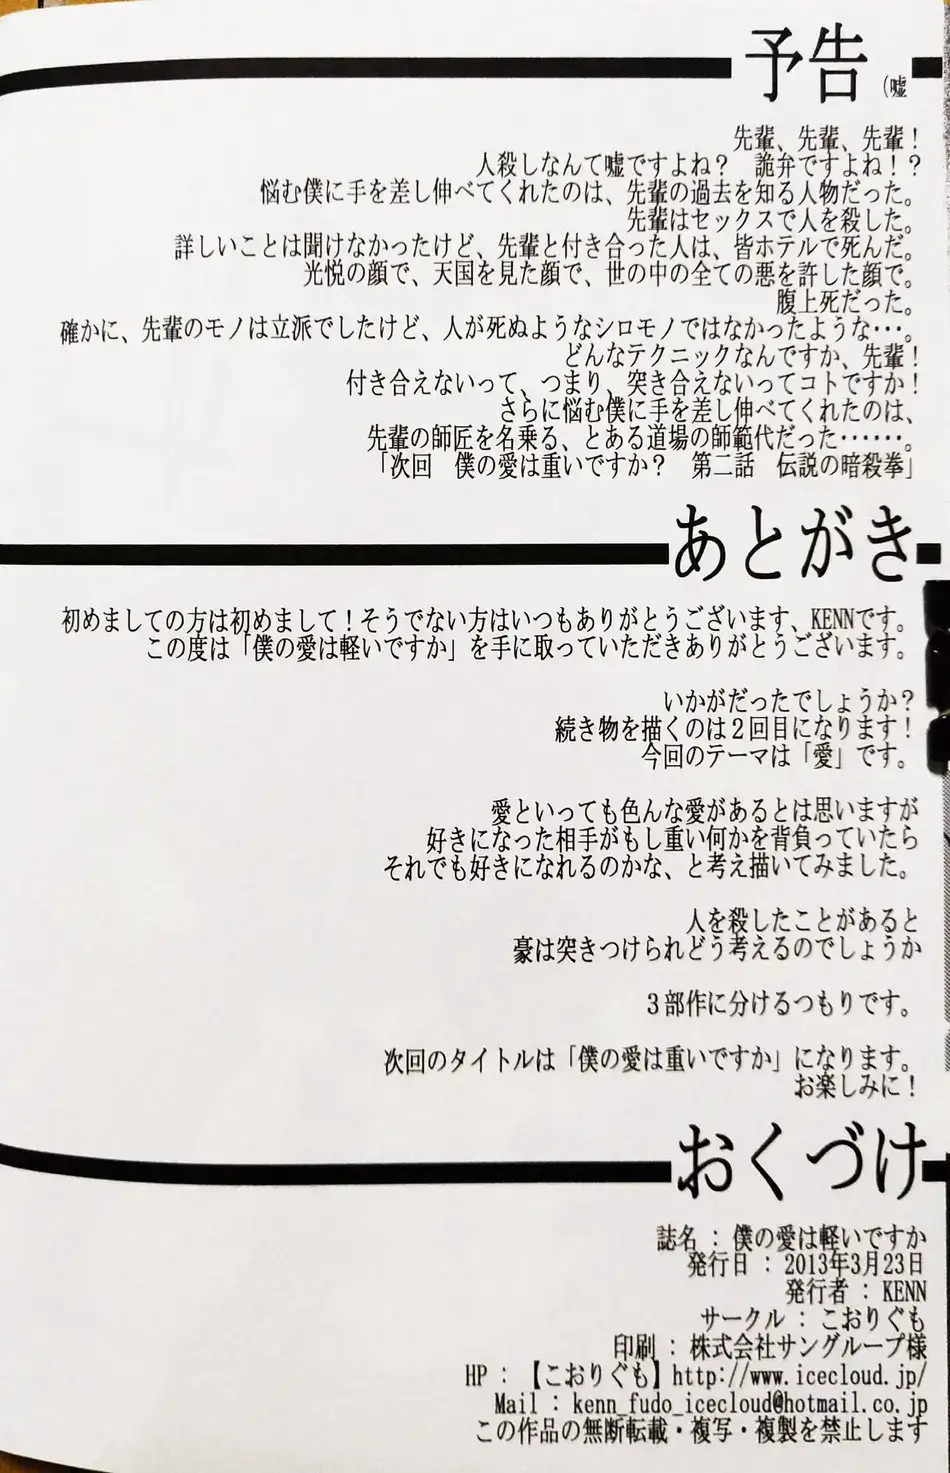 予告 (嘘
先輩、先輩、先輩！
人殺しなんて嘘ですよね？　詭弁ですよね！？
悩む僕に手を差し伸べてくれたのは、先輩の過去を知る人物だった。
先輩はセックスで人を殺した。
詳しいことは聞けなかったけど、先輩と付き合った人は、皆ホテルで死んだ。
光悦の顔で、天国を見た顔で、世の中の全ての悪を許した顔で。
腹上死だった。
確かに、先輩のモノは立派でしたけど、人が死ぬようなシロモノではなかったような･･･。
どんなテクニックなんですか、先輩！
付き合えないって、つまり、突き合えないってコトですか！
さらに悩む僕に手を差し伸べてくれたのは、
先輩の師匠を名乗る、とある道場の師範代だった･･････。
「次回　僕の愛は重いですか？　第二話　伝説の暗殺拳」
あとがき
初めましての方は初めまして！そうでない方はいつもありがとうございます、KENNです。
この度は「僕の愛は軽いですか」を手に取っていただきありがとうございます。
いかがだったでしょうか？
続き物を描くのは２回目になります！
今回のテーマは「愛」です。
愛といっても色んな愛があるとは思いますが
好きになった相手がもし重い何かを背負っていたら
それでも好きになれるのかな、と考え描いてみました。
人を殺したことがあると
豪は突きつけられどう考えるのでしょうか
３部作に分けるつもりです。
次回のタイトルは「僕の愛は重いですか」になります。
お楽しみに！
おくづけ
誌名 : 僕の愛は軽いですか
発行日 : 2013年3月23日
発行者 : KENN
サークル : こおりぐも
印刷 : 株式会社サングループ様
HP : 【こおりぐも】http://www.icecloud.jp/
Mail : kenn_fudo_icecloud@hotmail.co.jp
この作品の無断転載・複写・複製を禁止します